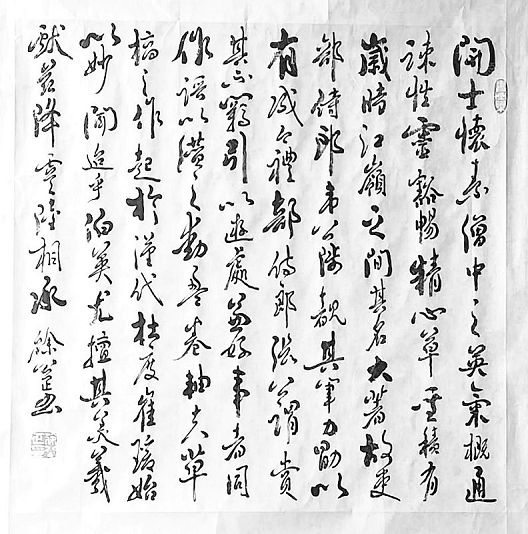 開士懷素僧中之英氣概通
疎性靈豁暢精心草聖積有
歲時江嶺之間其名大著故吏
部侍郎韋公陟覩其筆力勖以
有成今禮部侍郎張公謂賞
其不羈引以遊處兼好事者同
作以讚之動盈卷軸夫草
稿之作起於漢代杜度崔瑗始
以妙聞迨乎伯英尤擅其美羲
獻茲降虞陸相承